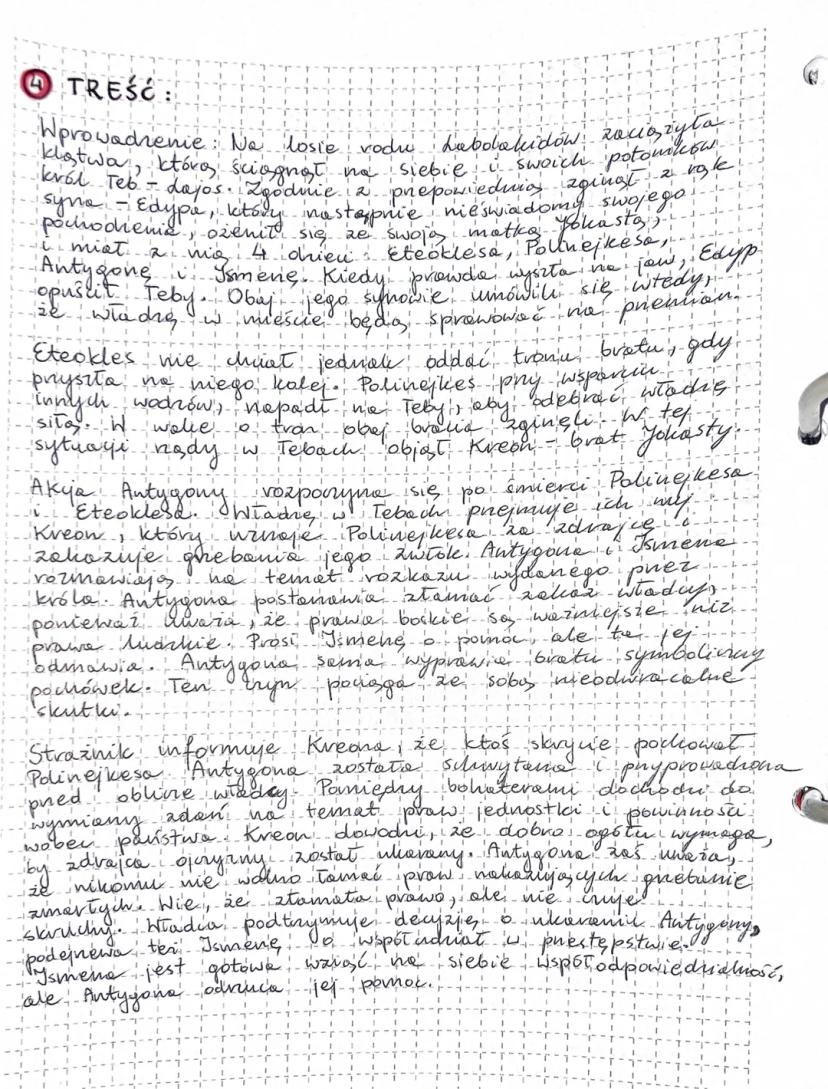 4 TREŚĆ:
Wprowadzenie: Na losie rodu Labdakidów zaciążyła
klątwa, którą ściągnął na siebie i swoich potomków
król Teb – Lajos. Zgodnie z przepowiednią zginął z rąk
syna – Edypa, który następnie nieświadomy swojego
pochodzenia, ożenił się ze swoją matką Jokastą,
i miał z nią 4 dzieci: Eteoklesa, Polinejkesa,
Antygonę i Ismenę. Kiedy prawda wyszła na jaw, Edyp
opuścił Teby. Obaj jego synowie umówili się wtedy,
że władzę w mieście będą sprawować na przemian.
Eteokles nie chciał jednak oddać tronu bratu, gdy
przyszła na niego kolej. Polinejkes przy wsparciu
innych wodzów, napadł na Teby, aby odebrać władzę
siłą. W walce o tron obaj bracia zginęli. W tej
sytuacji rządy w Tebach objął Kreon – brat Jokasty.
Akcja Antygony rozpoczyna się po śmierci Polinejkesa
i Eteoklesa. Władzę w Tebach przejmuje ich wuj
Kreon, który uznaje Polinejkesa za zdrajcę i
zakazuje grzebania jego zwłok. Antygona i Ismena
rozmawiają na temat rozkazu wydanego przez
króla. Antygona postanawia złamać zakaz władcy,
ponieważ uważa, że prawa boskie są ważniejsze niż
prawa ludzkie. Prosi Ismenę o pomoc, ale ta jej
odmawia. Antygona sama wyprawia bratu symboliczny
pochówek. Ten czyn pociąga ze sobą nieodwracalne
skutki.
Strażnik informuje Kreona, że ktoś skrycie pochował
Polinejkesa. Antygona została schwytana i przyprowadzona
przed oblicze władcy. Pomiędzy bohaterami dochodzi do
wymiany zdań na temat praw jednostki i powinności
wobec państwa. Kreon dowodzi, że dobro ogółu wymaga,
by zdrajca ojczyzny został ukarany. Antygona zaś uważa,
że nikomu nie wolno łamać praw nakazujących grzebanie
zmarłych. Wie, że złamała prawo, ale nie czuje
skruchy. Władca podtrzymuje decyzję o ukaraniu Antygony,
podejrzewa też Ismenę o współudział w przestępstwie.
Ismena jest gotowa wziąść na siebie współodpowiedzialność,
ale Antygona odrzuca jej pomoc.